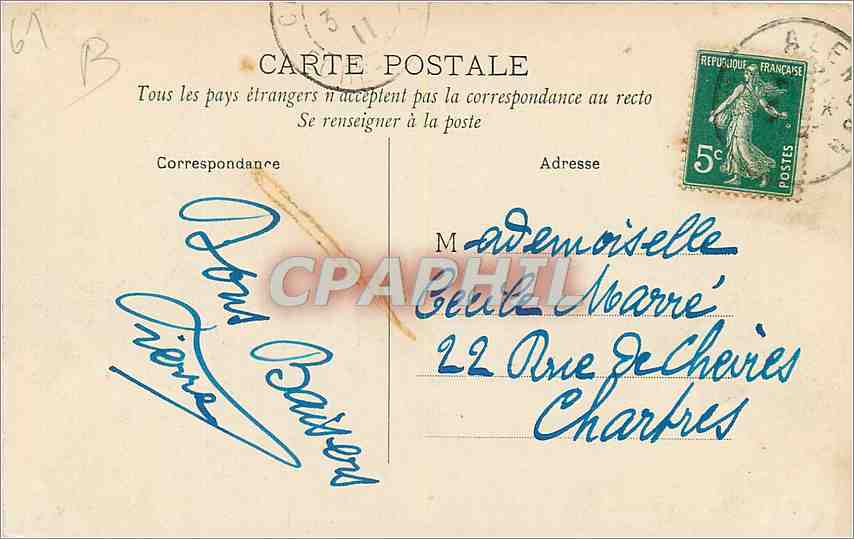 61
B
3
11
CARTE POSTALE
Tous les pays étrangers n'acceptent pas la correspondance au recto
Se renseigner à la poste
ALEN
REPUBLIQUE FRANÇAISE
5c
POSTES
Correspondance
Adresse
Bons Baisers
Pierre
Mademoiselle
Cecile Marré
22 Rue de Chevres
Chartres
CPAPHIL